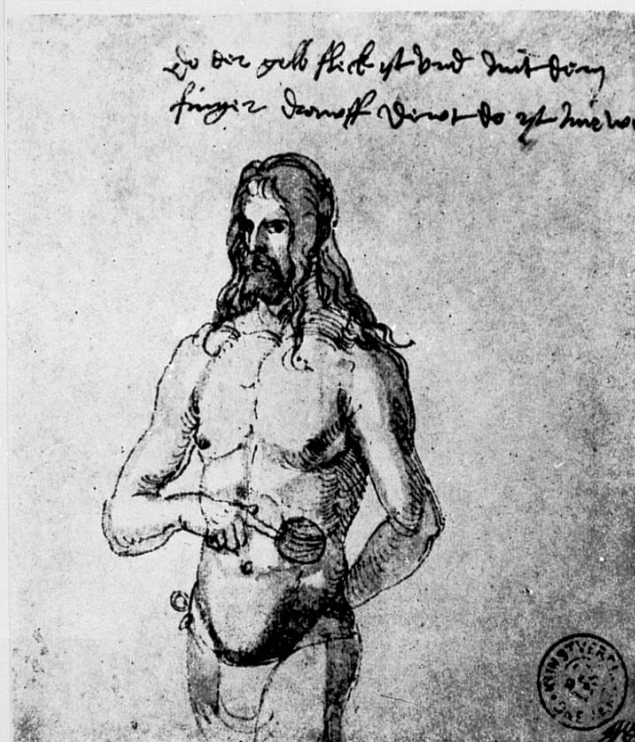 Do der gelb fleck ist vnd mit dem
finger drawff dewt do ist mir we
KUNSTVEREIN
BREMEN